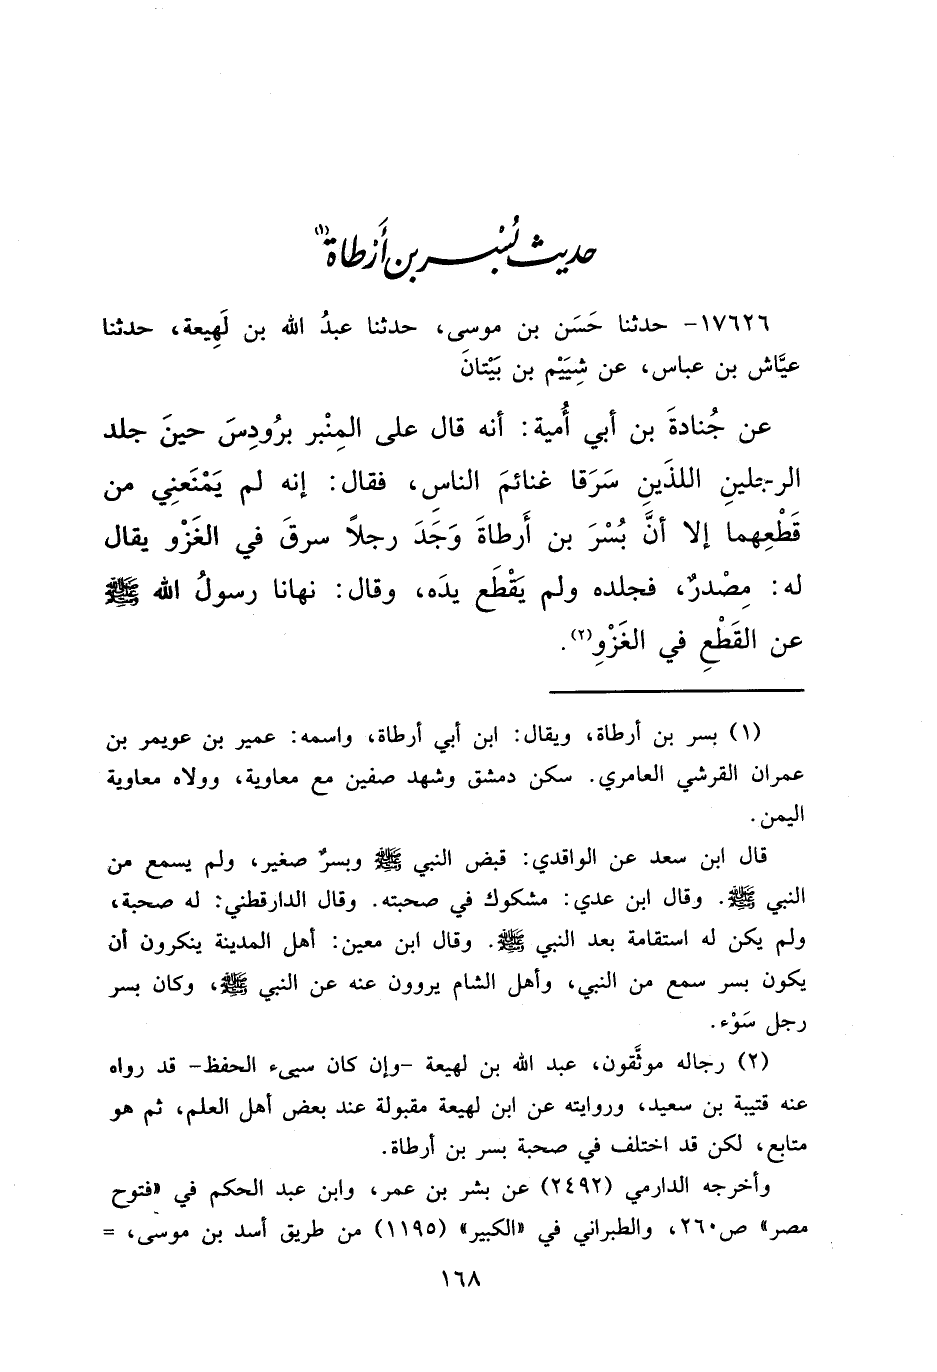 حديث بُسْر بن أَرْطاة(١)
١٧٦٢٦- حدثنا حَسَن بن موسى، حدثنا عبدُ الله بن لَهِيعة، حدثنا
عيَّاش بن عباس، عن شِيَيْم بن بَيْتانَ
عن جُنادةَ بن أبي أُمية: أنه قال على المِنْبر برُودِسَ حينَ جلد
الرجلينِ اللذَينِ سَرَقا غنائمَ الناسِ، فقال: إنه لم يَمْنَعنِي من
قَطْعِهما إلا أنَّ بُسْرَ بن أَرطاةَ وَجَدَ رجلاً سرقَ في الغَزْو يقال
له: مِصْدرٌ، فجلده ولم يَقْطَع يدَه، وقال: نهانا رسولُ الله ﷺ
عن القَطْعِ في الغَزْوِ(٢).
(١) بسر بن أرطاة، ويقال: ابن أبي أرطاة، واسمه: عمير بن عويمر بن
عمران القرشي العامري. سكن دمشق وشهد صفين مع معاوية، وولاه معاوية
اليمن.
قال ابن سعد عن الواقدي: قبض النبي ﷺ وبسرٌ صغير، ولم يسمع من
النبي ﷺ. وقال ابن عدي: مشكوك في صحبته. وقال الدارقطني: له صحبة،
ولم يكن له استقامة بعد النبي ﷺ. وقال ابن معين: أهل المدينة ينكرون أن
يكون بسر سمع من النبي، وأهل الشام يروون عنه عن النبي ﷺ، وكان بسر
رجل سَوْء.
(٢) رجاله موثَّقون، عبد الله بن لهيعة -وإن كان سيىء الحفظ- قد رواه
عنه قتيبة بن سعيد، وروايته عن ابن لهيعة مقبولة عند بعض أهل العلم، ثم هو
متابع، لكن قد اختلف في صحبة بسر بن أرطاة.
وأخرجه الدارمي (٢٤٩٢) عن بشر بن عمر، وابن عبد الحكم في «فتوح
مصر» ص٢٦٠، والطبراني في «الكبير» (١١٩٥) من طريق أسد بن موسى، =
١٦٨